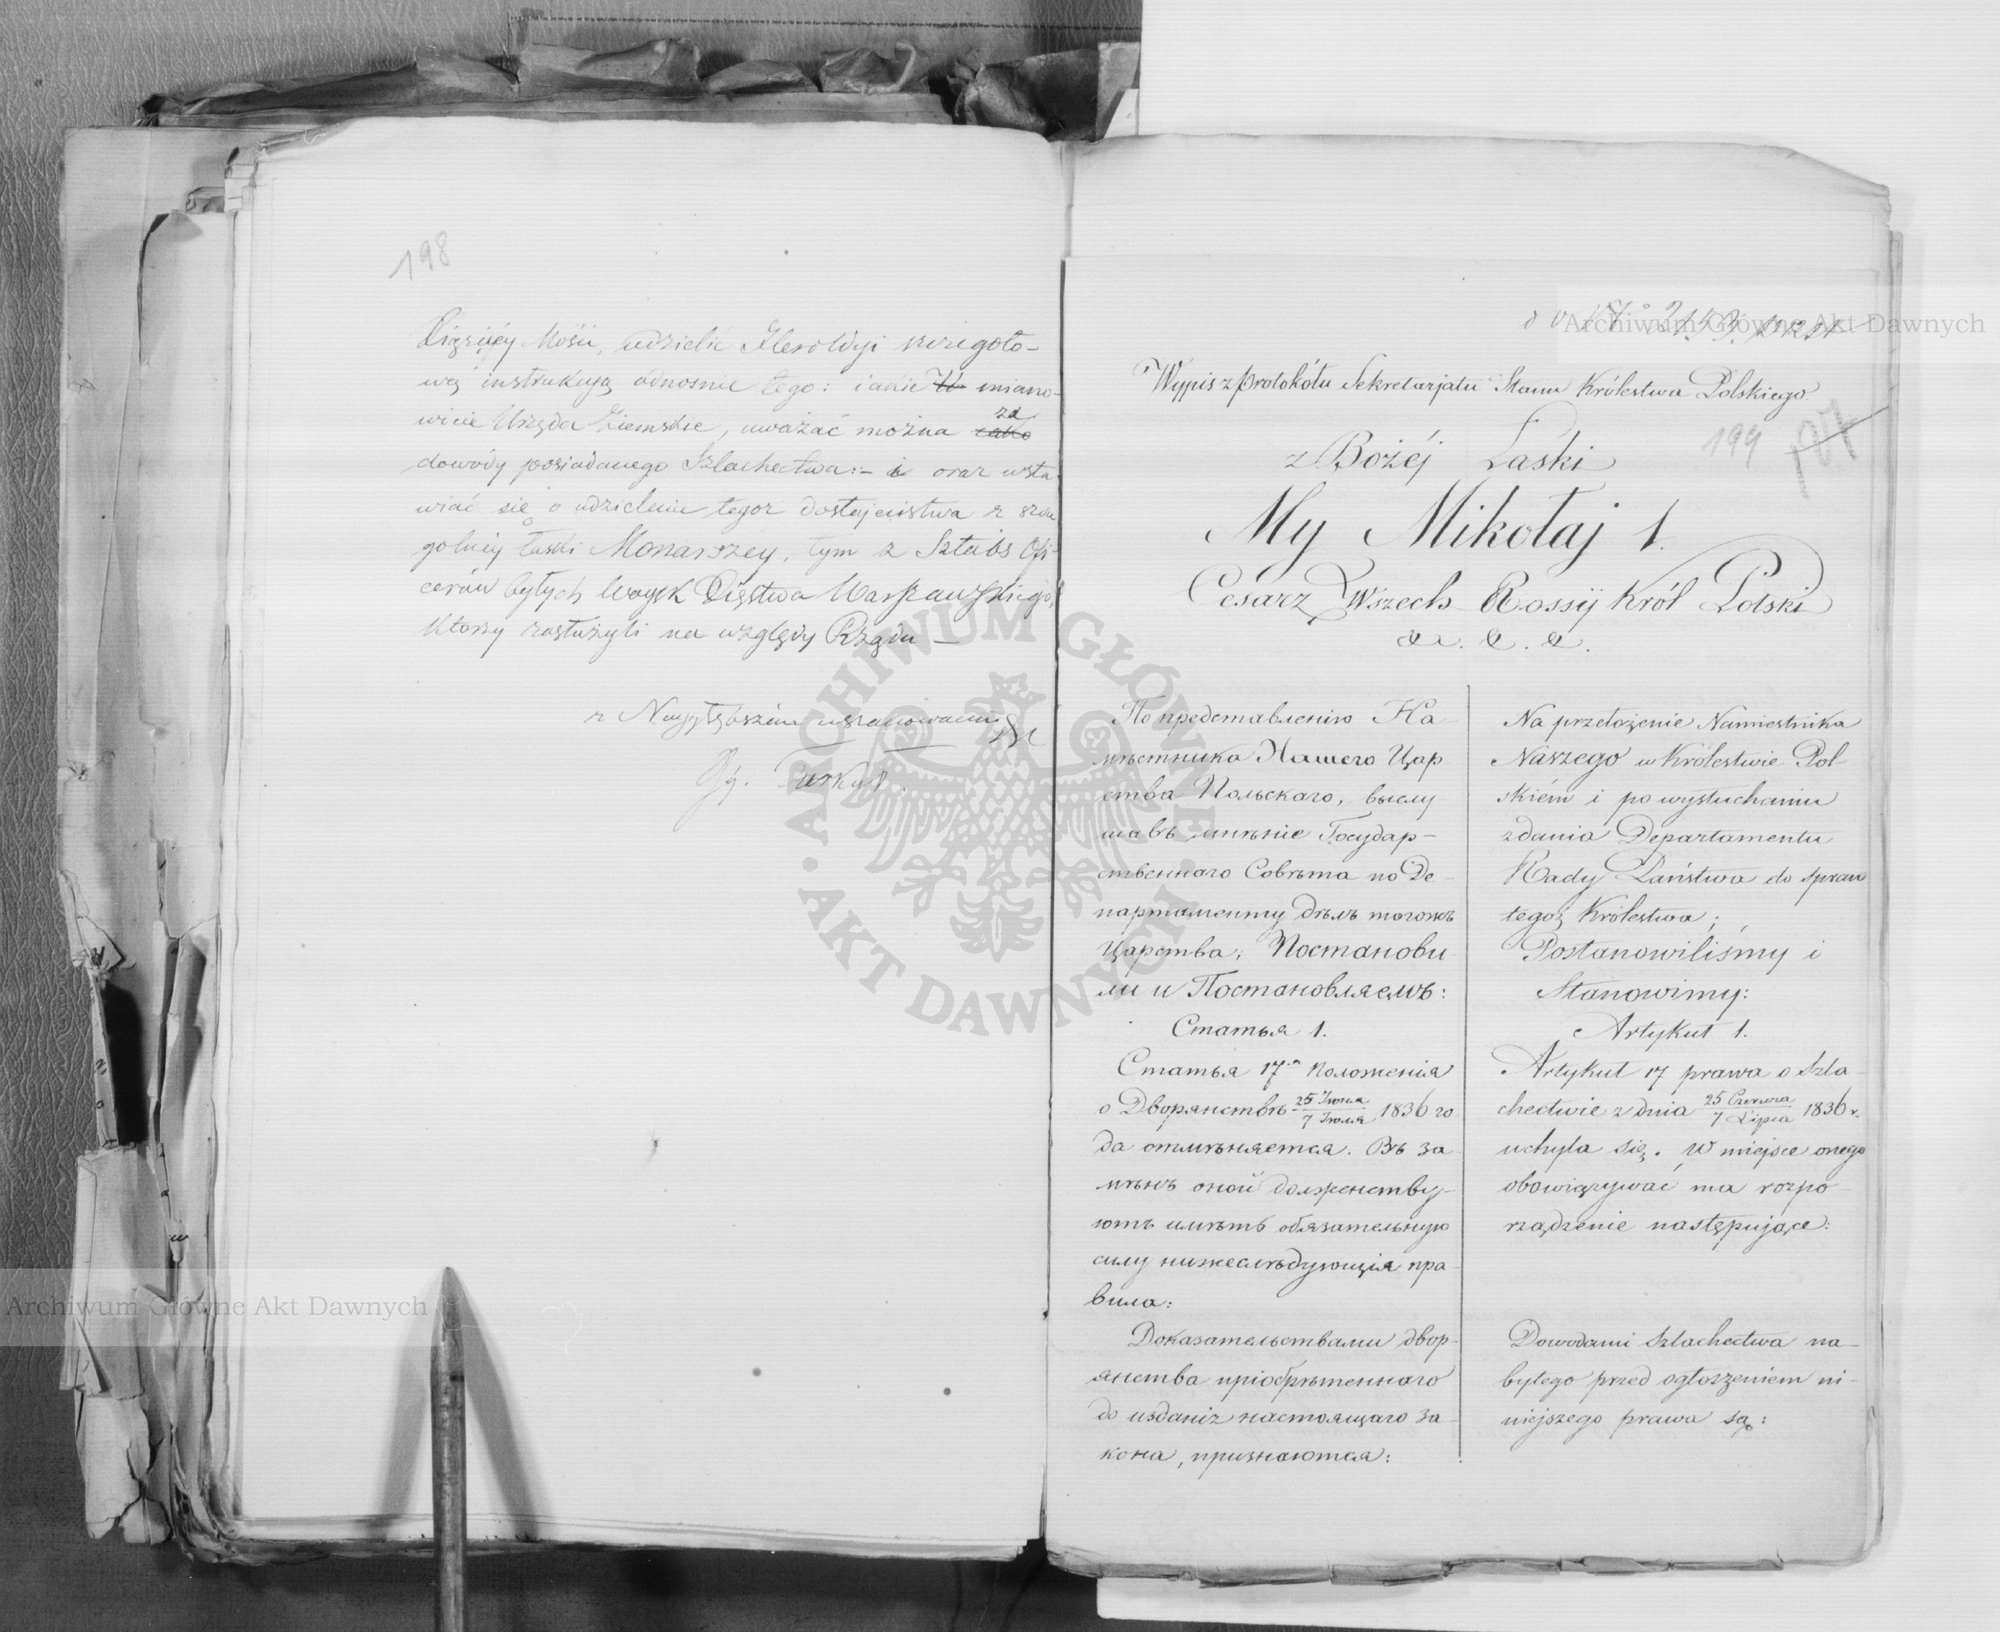 198
Xiążęcey Mości, udzielić Heroldyi szczegóło-
wą instrukcyą odnośnie tego: iakie W miano-
wicie Urzęda Ziemskie, uważać można za iako
dowody posiadanego Szlachectwa:- i oraz wsta-
wiać się o udzielenie tegoż dostojeństwa z szcze
gólnéy łaski Monarszey, tym z Sztabs Ofi-
cerów byłych Woysk Xięstwa Warszawskiego,
którzy zasłużyli na względy Rządu —
z Naygłębszém uszanowaniem
do N° 2143
Wypis z Protokółu Sekretarjatu Stanu Królestwa Polskiego.
199
197
z Bożéj Łaski
My Mikołaj 1.
Cesarz Wszech Rossij Król Polski
&. &. &.
По представленію На-
мѣстника Нашего Цар
ства Польскаго, выслу
шавъ мнѣніе Государ-
ственнаго Совѣта по Де-
партаменту дѣлъ тогожъ
Царства; Постанови
ли и Постановляемъ:
Статья 1.
Статья 17.я Положенія
о Дворянствѣ 25 Іюня / 7 Іюля 1836 го
да отмѣняется. Въ за
мѣнъ оной долженству-
ютъ имѣть обязательную
силу нижеслѣдующія пра-
вила:
Доказательствами двор-
янства пріобрѣтеннаго
до изданія настоящаго за-
кона, признаются:
Na przełożenie Namiestnika
Naszego w Królestwie Pol-
skiém i po wysłuchaniu
zdania Departamentu
Rady Państwa do spraw
tegoż Królestwa;
Postanowiliśmy i
Stanowimy:
Artykuł 1.
Artykuł 17 prawa o Szla-
chectwie z dnia 25 Czerwca / 7 Lipca 1836 r.
uchyla się. W miejsce onego
obowiązywać ma rozpo-
rządzenie następujące:
Dowodami Szlachectwa na-
bytego przed ogłoszeniem ni-
niejszego prawa są:
Archiwum Główne Akt Dawnych
Archiwum Główne Akt Dawnych
ARCHIWUM GŁÓWNE AKT DAWNYCH